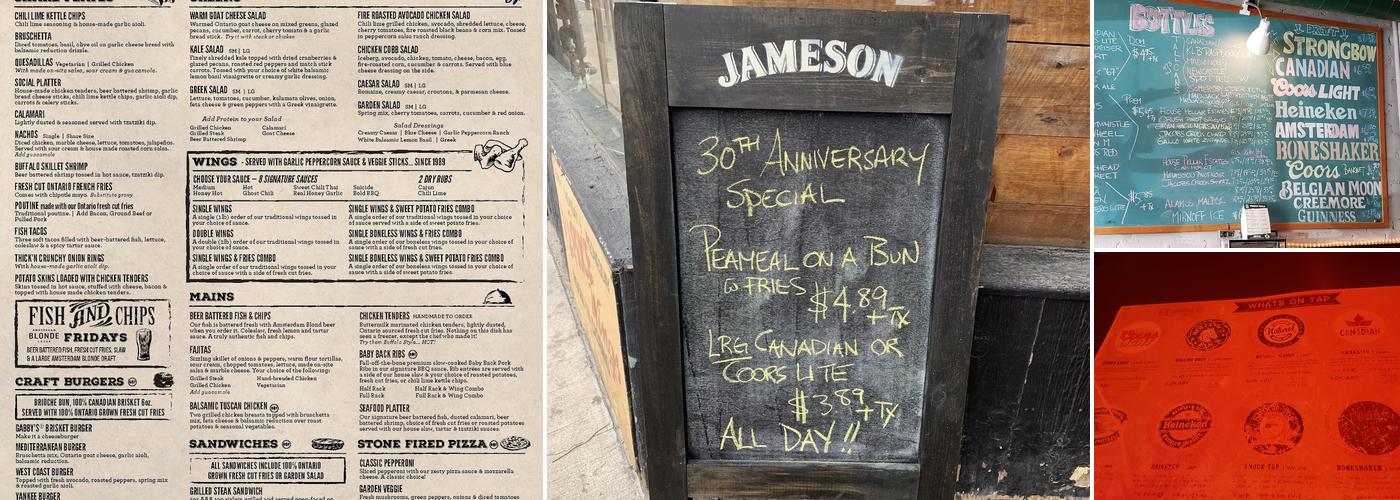 CHILI LIME KETTLE CHIPS
Chili lime seasoning & house-made garlic aioli.
BRUSCHETTA
Diced tomatoes, basil, olive oil on garlic cheese bread with
balsamic reduction drizzle.
QUESADILLAS Vegetarian | Grilled Chicken
With made on-site salsa, sour cream & guacamole.
SOCIAL PLATTER
House-made chicken tenders, beer battered shrimp, garlic
bread cheese sticks, chili lime kettle chips, garlic aioli dip,
carrots & celery sticks.
CALAMARI
Lightly dusted & seasoned served with tzatziki dip.
NACHOS Single | Share Size
Diced chicken, marble cheese, lettuce, tomatoes, jalapeños.
Served with sour cream & house made roasted corn salsa.
Add guacamole
BUFFALO SKILLET SHRIMP
Beer battered shrimp tossed in hot sauce, tzatziki dip.
FRESH CUT ONTARIO FRENCH FRIES
Comes with chipotle mayo. Substitute gravy
POUTINE made with our Ontario fresh cut fries
Traditional poutine. | Add Bacon, Ground Beef or
Pulled Pork
FISH TACOS
Three soft tacos filled with beer-battered fish, lettuce,
coleslaw & a spicy tartar sauce.
THICK'N CRUNCHY ONION RINGS
With house-made garlic aioli dip.
POTATO SKINS LOADED WITH CHICKEN TENDERS
Skins tossed in hot sauce, stuffed with cheese, bacon &
topped with house made chicken tenders.
FISH AND CHIPS
AMSTERDAM
BLONDE FRIDAYS
BEER BATTERED FISH, FRESH CUT FRIES, SLAW
& A LARGE AMSTERDAM BLONDE DRAFT
CRAFT BURGERS
BRIOCHE BUN, 100% CANADIAN BRISKET 6oz.
SERVED WITH 100% ONTARIO GROWN FRESH CUT FRIES
GABBY'S® BRISKET BURGER
Make it a cheeseburger
MEDITERRANEAN BURGER
Bruschetta mix, Ontario goat cheese, garlic aioli,
balsamic reduction.
WEST COAST BURGER
Topped with fresh avocado, roasted peppers, spring mix
& roasted garlic aioli.
YANKEE BURGER
WARM GOAT CHEESE SALAD
Warmed Ontario goat cheese on mixed greens, glazed
pecans, cucumber, carrot, cherry tomato & a garlic
bread stick. Try it with steak or chicken
KALE SALAD SM | LG
Finely shredded kale topped with dried cranberries &
glazed pecans, roasted red peppers and match stick
carrots. Tossed with your choice of white balsamic
lemon basil vinaigrette or creamy garlic dressing.
GREEK SALAD SM | LG
Lettuce, tomatoes, cucumber, kalamata olives, onion,
feta cheese & green peppers with a Greek vinaigrette.
Add Protein to your Salad
Grilled Chicken Calamari
Grilled Steak Goat Cheese
Beer Battered Shrimp
FIRE ROASTED AVOCADO CHICKEN SALAD
Chili lime grilled chicken, avocado, shredded lettuce, cheese,
cherry tomatoes, fire roasted black beans & corn mix. Tossed
in peppercorn salsa ranch dressing.
CHICKEN COBB SALAD
Iceberg, avocado, chicken, tomato, cheese, bacon, egg,
fire-roasted corn, cucumber & carrots. Served with blue
cheese dressing on the side.
CAESAR SALAD SM | LG
Romaine, creamy caesar, croutons, & parmesan cheese.
GARDEN SALAD SM | LG
Spring mix, cherry tomatoes, cucumber & carrot.
Salad Dressings
Creamy Caesar | Blue Cheese | Garlic Peppercorn Ranch
White Balsamic Lemon Basil | Greek
WINGS - SERVED WITH GARLIC PEPPERCORN SAUCE & VEGGIE STICKS... SINCE 1989
CHOOSE YOUR SAUCE – 8 SIGNATURE SAUCES 2 DRY RUBS
Medium Hot Sweet Chili Thai Suicide Cajun
Honey Hot Ghost Chili Real Honey Garlic Bold BBQ Chili Lime
SINGLE WINGS
A single (1lb) order of our traditional wings tossed in
your choice of sauce.
DOUBLE WINGS
A double (2lb) order of our traditional wings tossed in
your choice of sauce.
SINGLE WINGS & FRIES COMBO
A single order of our traditional wings tossed in your
choice of sauce with a side of fresh cut fries.
SINGLE WINGS & SWEET POTATO FRIES COMBO
A single order of our traditional wings tossed in your choice
of sauce served with a side of sweet potato fries.
SINGLE BONELESS WINGS & FRIES COMBO
A single order of our boneless wings tossed in your choice of
sauce with a side of fresh cut fries.
SINGLE BONELESS WINGS & SWEET POTATO FRIES COMBO
A single order of our boneless wings tossed in your choice of
sauce with a side of sweet potato fries.
MAINS
BEER BATTERED FISH & CHIPS
Our fish is battered fresh with Amsterdam Blond beer
when you order it. Coleslaw, fresh lemon and tartar
sauce. A truly authentic fish and chips.
FAJITAS
Sizzling skillet of onions & peppers, warm flour tortillas,
sour cream, chopped tomatoes, lettuce, made on-site
salsa & marble cheese. Your choice of the following:
Grilled Steak Hand-breaded Chicken
Grilled Chicken Vegetarian
Add guacamole
BALSAMIC TUSCAN CHICKEN
Two grilled chicken breasts topped with bruschetta
mix, feta cheese & balsamic reduction over roast
potatoes & seasonal vegetables.
CHICKEN TENDERS HANDMADE TO ORDER
Buttermilk marinated chicken tenders, lightly dusted,
Ontario sourced fresh cut fries. Nothing on this dish has
seen a freezer, except the chef who made it!
Try them Buffalo Style... HOT!
BABY BACK RIBS
Fall-off-the-bone premium slow-cooked Baby Back Pork
Ribs in our signature BBQ sauce. Rib entrées are served with
a side of our house slaw & your choice of roasted potatoes,
fresh cut fries, or chili lime kettle chips.
Half Rack Half Rack & Wing Combo
Full Rack Full Rack & Wing Combo
SEAFOOD PLATTER
Our signature beer battered fish, dusted calamari, beer
battered shrimp, choice of fresh cut fries or roasted potatoes
served with our house slaw, tartar & tzatziki dip.
SANDWICHES
ALL SANDWICHES INCLUDE 100% ONTARIO
GROWN FRESH CUT FRIES OR GARDEN SALAD
GRILLED STEAK SANDWICH
STONE FIRED PIZZA
CLASSIC PEPPERONI
Sliced pepperoni with our zesty pizza sauce & mozzarella
cheese. A classic choice!
GARDEN VEGGIE
Fresh mushrooms, green peppers, onions & diced tomatoes
JAMESON
30TH ANNIVERSARY
SPECIAL
PEAMEAL ON A BUN
W FRIES $4.89
+TX
LRG CANADIAN OR
COORS LITE
$3.89
+TX
ALL DAY!!
BOTTLES
DRAFT
STRONGBOW
CANADIAN
Coors LIGHT
Heineken
AMSTERDAM
BONESHAKER
Coors BANQUET
BELGIAN MOON
CREEMORE
GUINNESS
NEWCASTLE
SMIRNOFF ICE
WHATS ON TAP
Natural
CANADIAN
Heineken
HEINEKEN
KNOCK TAP
BONESHAKER